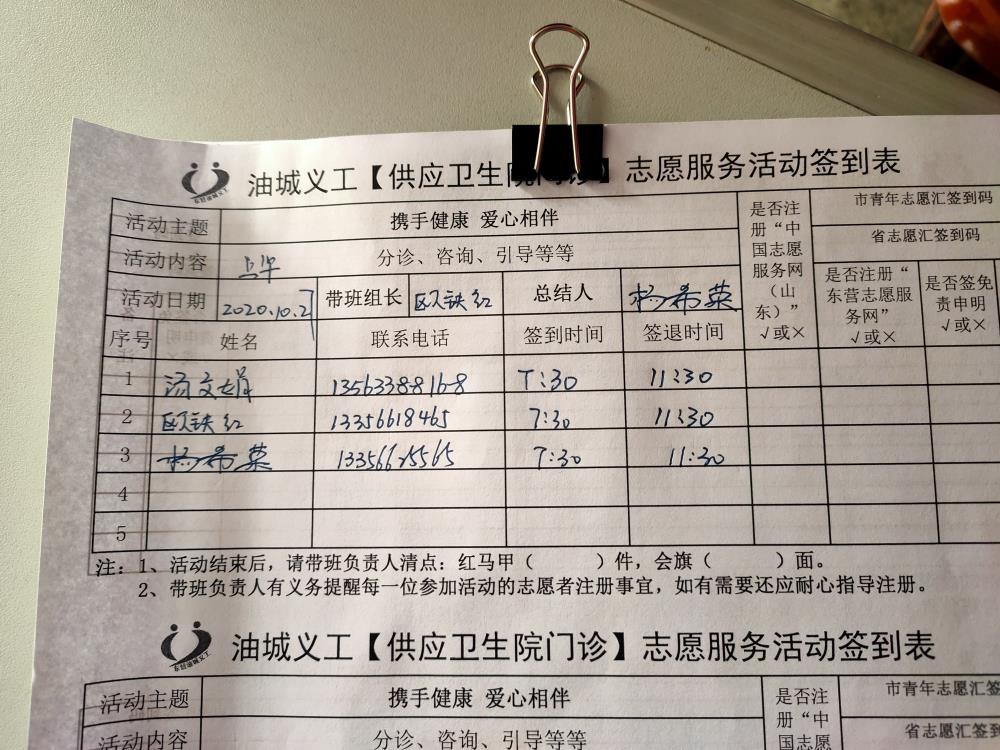 油城义工【供应卫生院门诊】志愿服务活动签到表
活动主题 携手健康 爱心相伴 是否注册“中国志愿服务网（山东）”√或× 市青年志愿汇签到码
活动内容 上午 分诊、咨询、引导等等 省志愿汇签到码
活动日期 2020.10.27 带班组长 欧铁红 总结人 杨希英 是否注册“东营志愿服务网”√或× 是否签免责申明√或×
序号 姓名 联系电话 签到时间 签退时间
1 汤文娟 13563388168 7:30 11:30
2 欧铁红 13356618465 7:30 11:30
3 杨希英 7:30 11:30
4
5
注：1、活动结束后，请带班负责人清点：红马甲（ ）件，会旗（ ）面。
2、带班负责人有义务提醒每一位参加活动的志愿者注册事宜，如有需要还应耐心指导注册。
油城义工【供应卫生院门诊】志愿服务活动签到表
活动主题 携手健康 爱心相伴 是否注册“中国志愿 市青年志愿汇签
活动内容 分诊、咨询、引导等等 省志愿汇签到